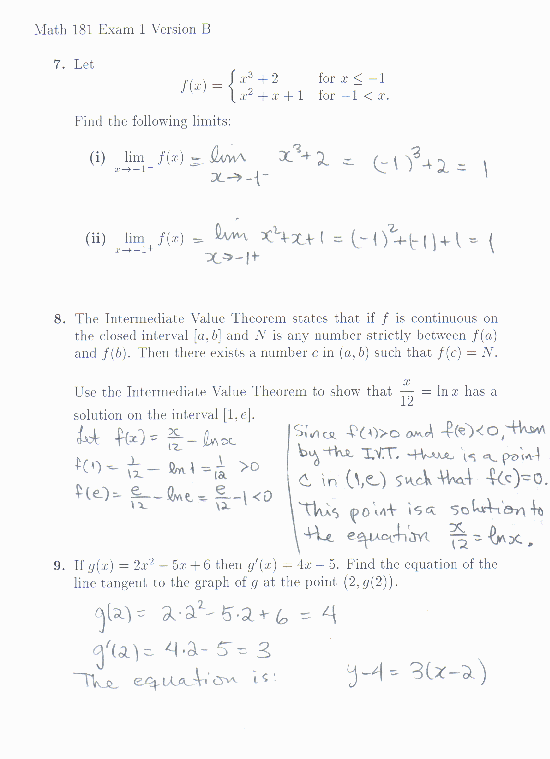 Math 181 Exam 1 Version B
7. Let
f(x) = { x³ + 2 for x ≤ −1
x² + x + 1 for −1 < x.
Find the following limits:
(i) lim x→−1⁻ f(x) = lim x→-1⁻ x³+2 = (-1)³+2 = 1
(ii) lim x→−1⁺ f(x) = lim x→-1+ x²+x+1 = (-1)²+(-1)+1 = 1
8. The Intermediate Value Theorem states that if f is continuous on
the closed interval [a, b] and N is any number strictly between f(a)
and f(b). Then there exists a number c in (a, b) such that f(c) = N.
Use the Intermediate Value Theorem to show that x/12 = ln x has a
solution on the interval [1, e].
Let f(x) = x/12 - ln x
f(1) = 1/12 - ln 1 = 1/12 >0
f(e) = e/12 - ln e = e/12 - 1 <0
Since f(1)>0 and f(e)<0, then
by the I.V.T. there is a point
C in (1,e) such that f(c)=0.
This point is a solution to
the equation x/12 = ln x.
9. If g(x) = 2x² − 5x + 6 then g′(x) = 4x − 5. Find the equation of the
line tangent to the graph of g at the point (2, g(2)).
g(2) = 2·2² - 5·2 + 6 = 4
g'(2) = 4·2 - 5 = 3
The equation is: y-4 = 3(x-2)